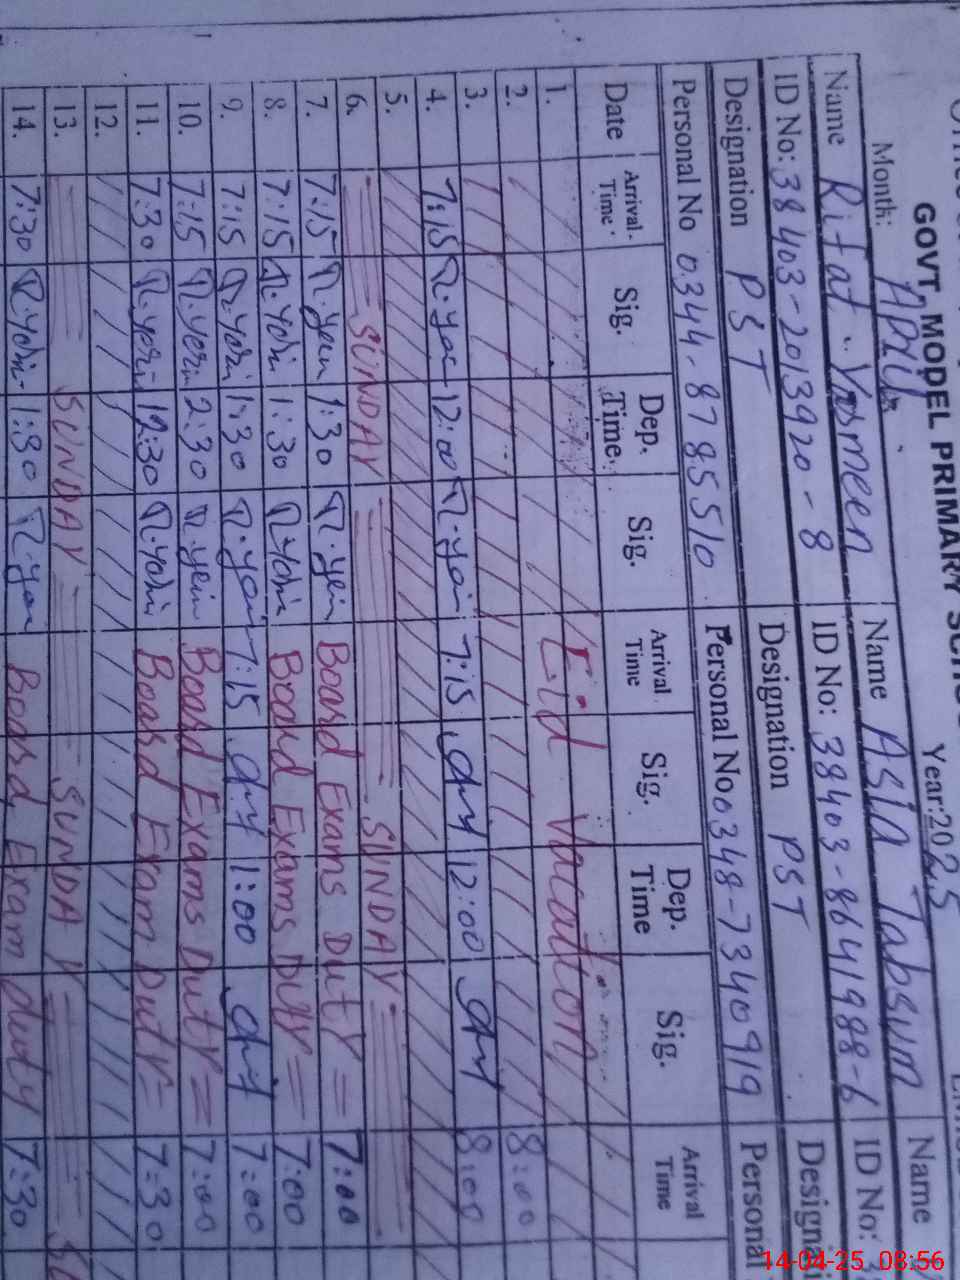 GOVT, MODEL PRIMARY
Month: April Year:2025
Name Rifat Yasmeen Name Asia Tabsum Name
ID No: 38403-2013920-8 ID No: 38403-8641988-6 ID No: 3
Designation PST Designation PST Designai
Personal No 0344-8785510 Personal No 0348-7340919 Personal
Date Arrival Time Sig. Dep. Time Sig. Arrival Time Sig. Dep. Time Sig. Arrival Time
1. Eid Vacation
2. 8:00
3. 8:00
4. 7:15 12:00 7:15 12:00
5.
6. SUNDAY SUNDAY
7. 7:15 1:30 Board Exams Duty = 7:00
8. 7:15 1:30 Board Exams Duty = 7:00
9. 7:15 1:30 7:15 1:00 7:00
10. 7:15 2:30 Board Exams Duty = 7:00
11. 7:30 12:30 Board Exam Duty = 7:30
12.
13. SUNDAY SUNDAY
14. 7:30 1:30 Board Exam duty 7:30
14-04-25 08:56